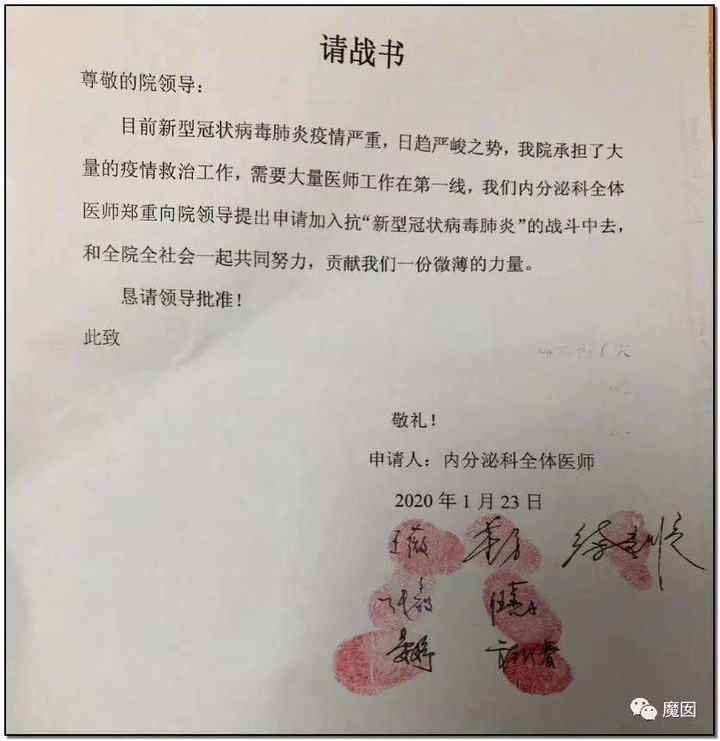 请战书
尊敬的院领导：
目前新型冠状病毒肺炎疫情严重，日趋严峻之势，我院承担了大
量的疫情救治工作，需要大量医师工作在第一线，我们内分泌科全体
医师郑重向院领导提出申请加入抗“新型冠状病毒肺炎”的战斗中去，
和全院全社会一起共同努力，贡献我们一份微薄的力量。
恳请领导批准！
此致
敬礼！
申请人：内分泌科全体医师
2020 年 1 月 23 日
王薇
魔囡